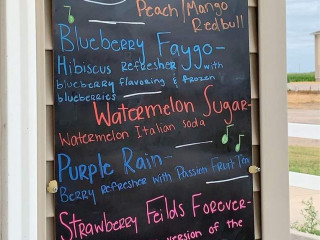 Peach/Mango
Redbull
Blueberry Faygo-
Hibiscus Refresher with
blueberry flavoring & frozen
blueberries
Watermelon Sugar-
Watermelon Italian soda
Purple Rain-
Berry refresher with Passion Fruit Tea
Strawberry Feilds Forever-
version of the